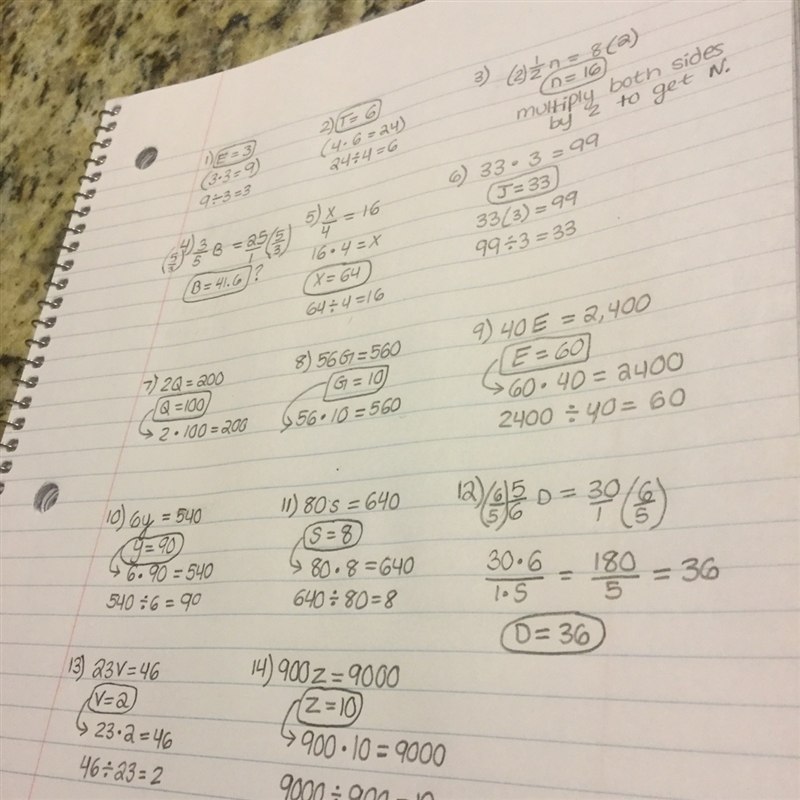 1) E = 3
(3·3=9)
9÷3=3
2) J = 6
(4·6=24)
24÷4=6
3) (2) 1/2 n = 8(2)
n=16
multiply both sides
by 2 to get N.
(5/3) 4) 3/5 B = 25/1 (5/3)
B=41.6 ?
5) x/4 = 16
16·4=x
x=64
64÷4=16
6) 33·3=99
J=33
33(3)=99
99÷3=33
7) 2Q=200
Q=100
2·100=200
8) 56G=560
G=10
56·10=560
9) 40E = 2,400
E=60
60·40=2400
2400÷40=60
10) 6y=540
y=90
6·90=540
540÷6=90
11) 80s=640
S=8
80·8=640
640÷80=8
12) (6/5) 5/6 D = 30/1 (6/5)
30·6/1·5 = 180/5 = 36
D=36
13) 23V=46
V=2
23·2=46
46÷23=2
14) 900z=9000
Z=10
900·10=9000
9000÷900=10